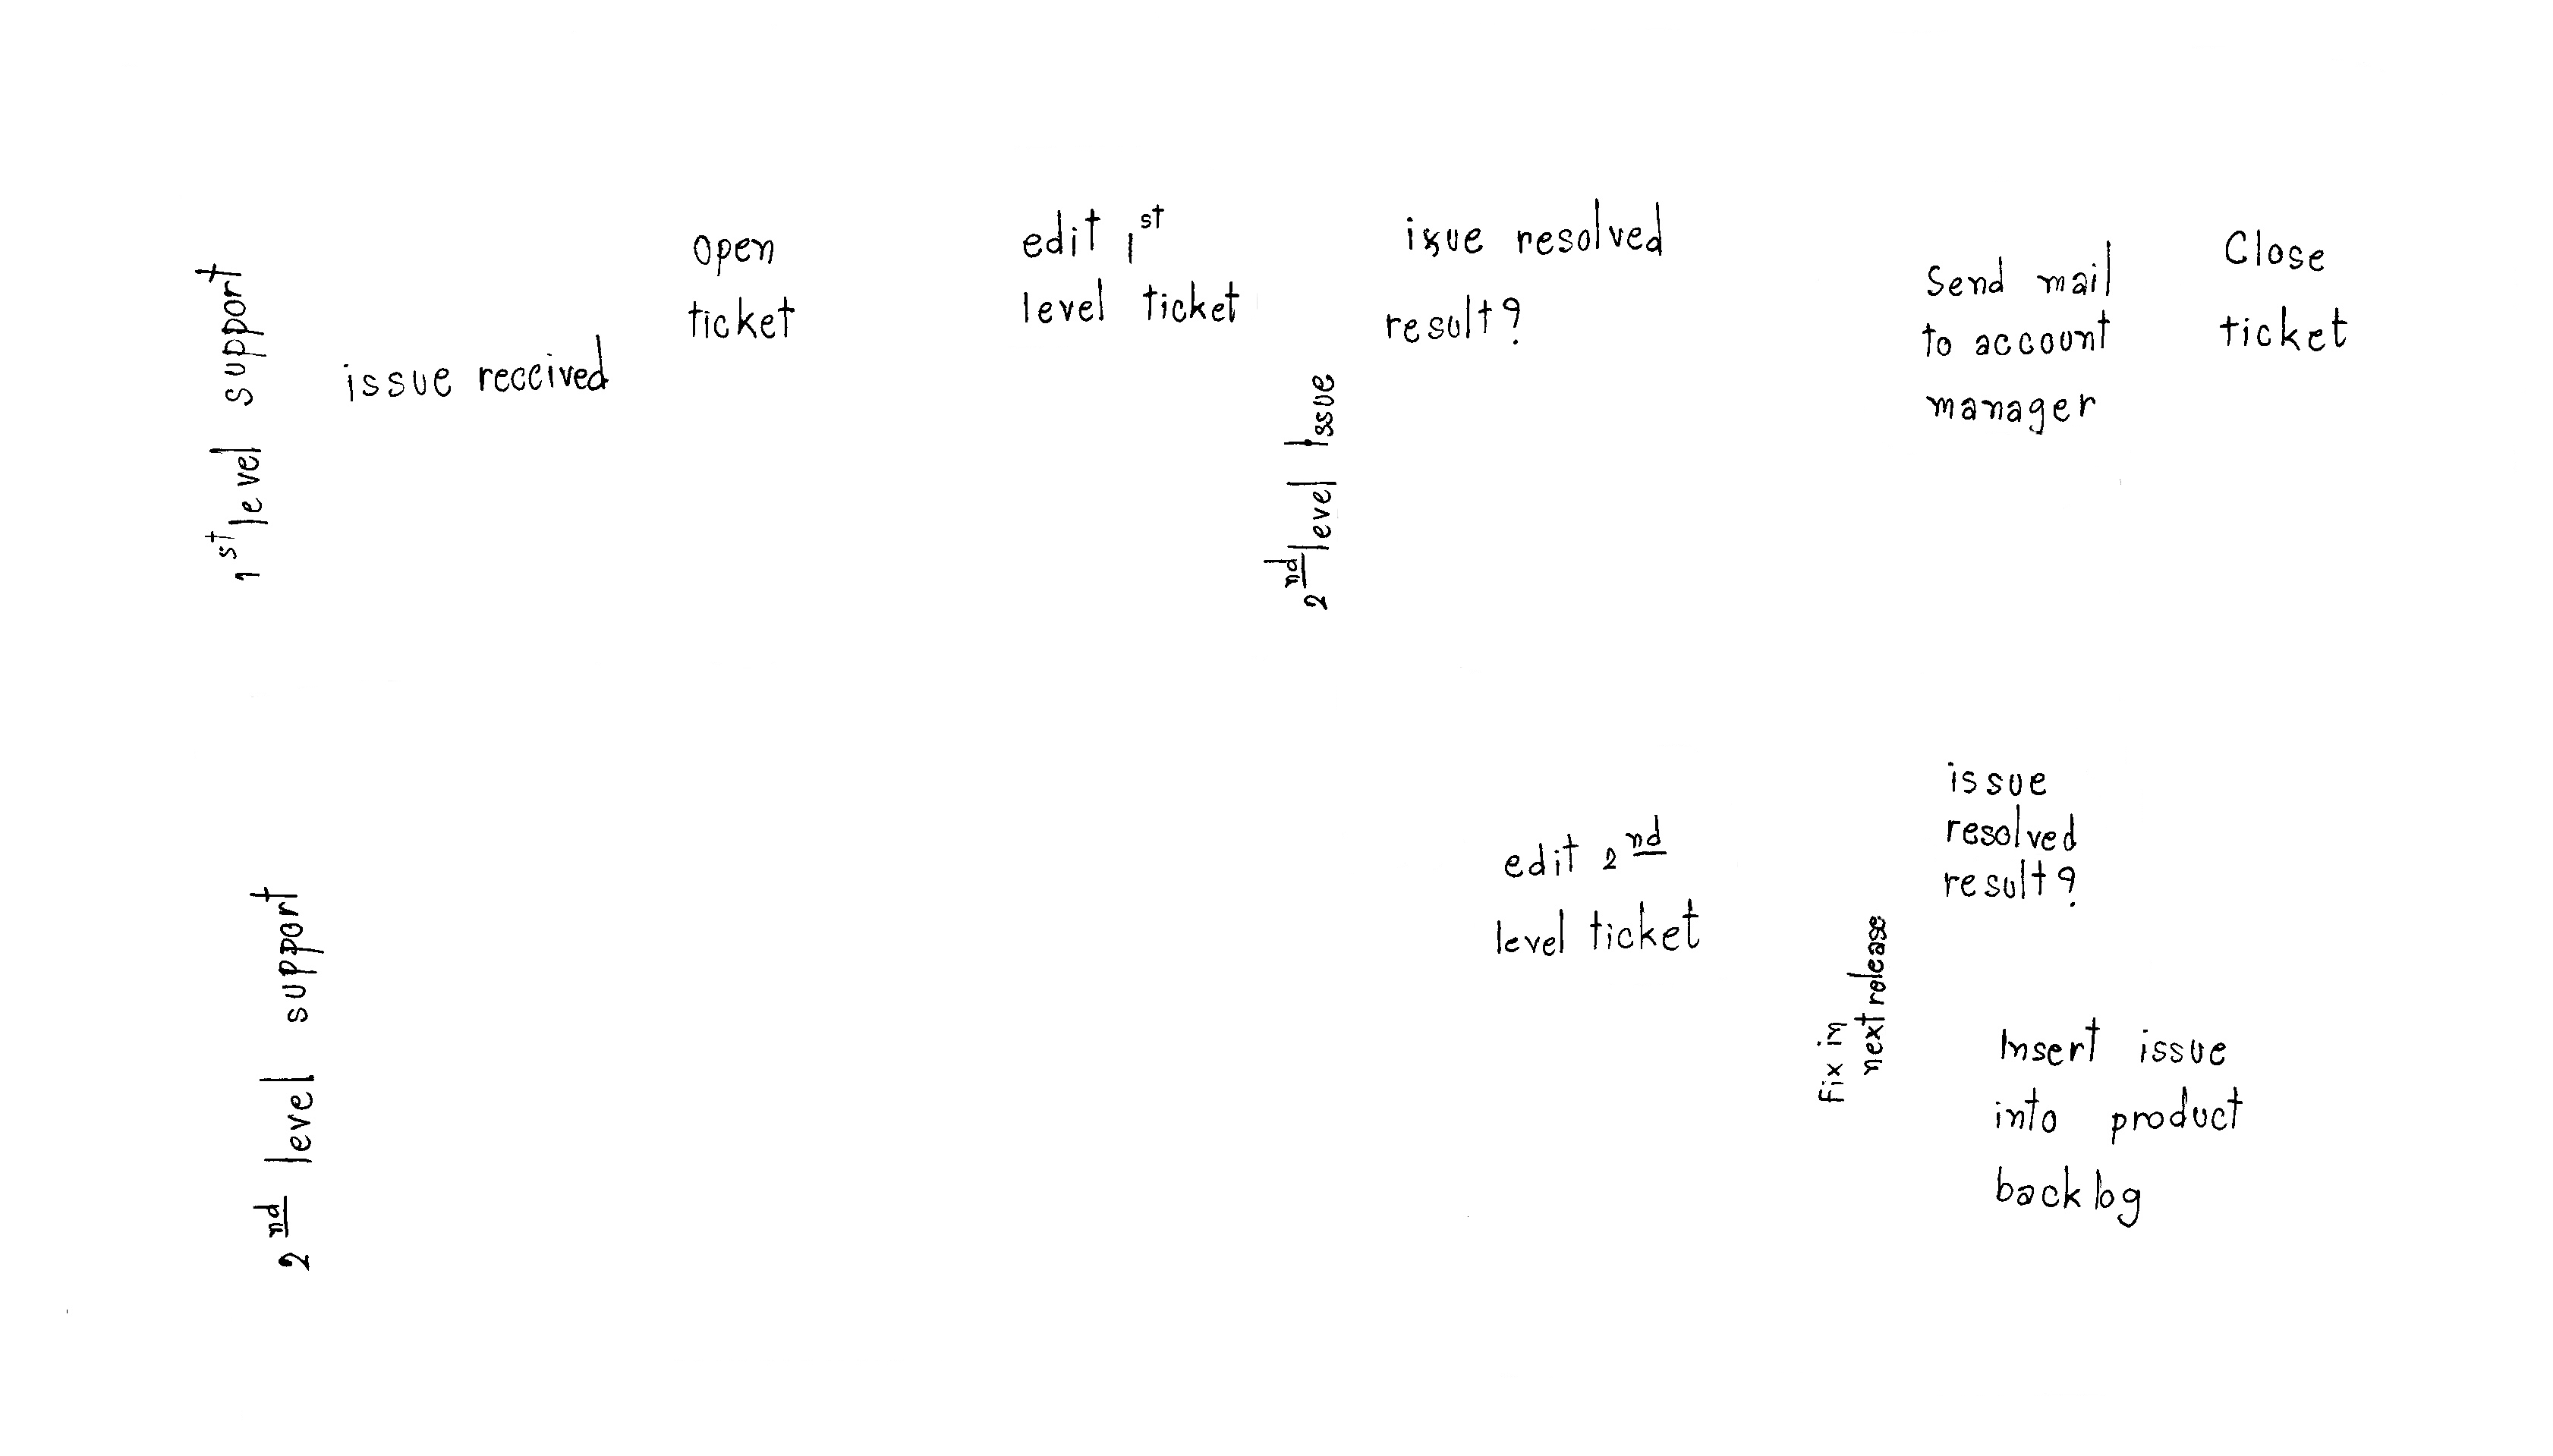 1st level support
issue received
open
ticket
edit 1st
level ticket
2nd level Issue
issue resolved
result?
Send mail
to account
manager
Close
ticket
2nd level support
edit 2nd
level ticket
Fix in
next release
issue
resolved
result?
Insert issue
into product
backlog